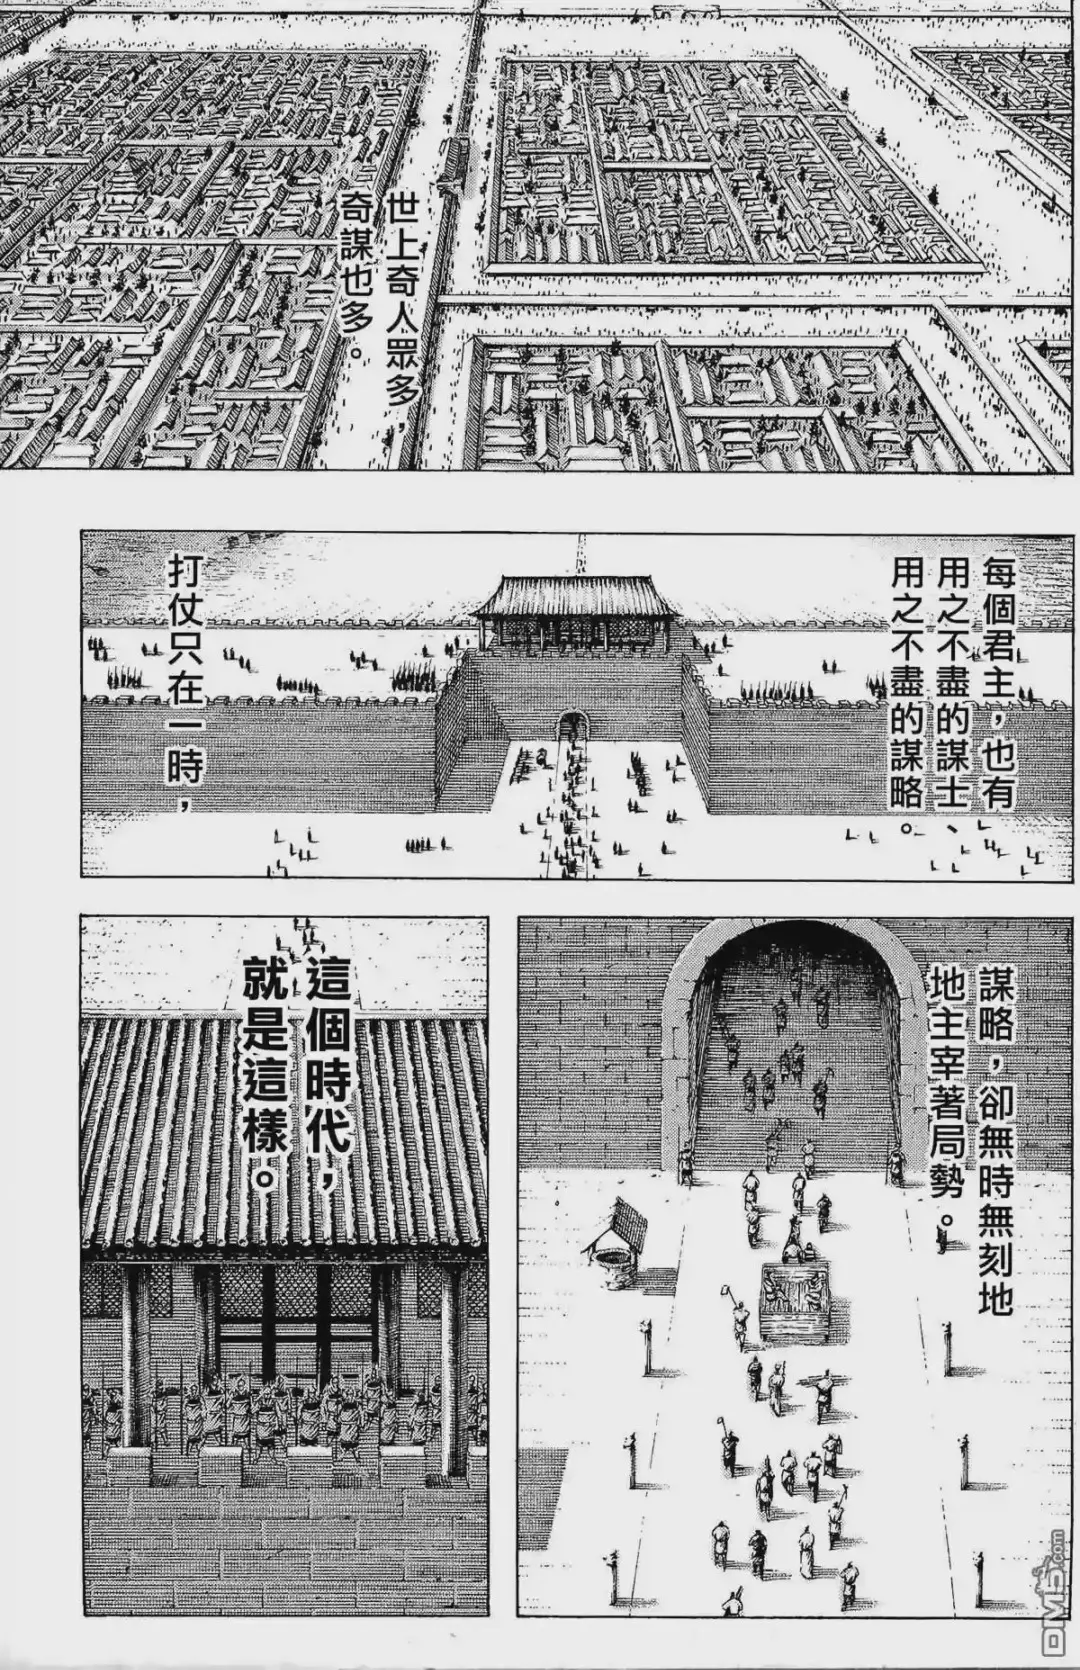 世上奇人眾多，
奇謀也多。
每個君主，也有
用之不盡的謀士、
用之不盡的謀略。
打仗只在一時，
謀略，卻無時無刻地
地主宰著局勢。
這個時代，
就是這樣。
DM5.com